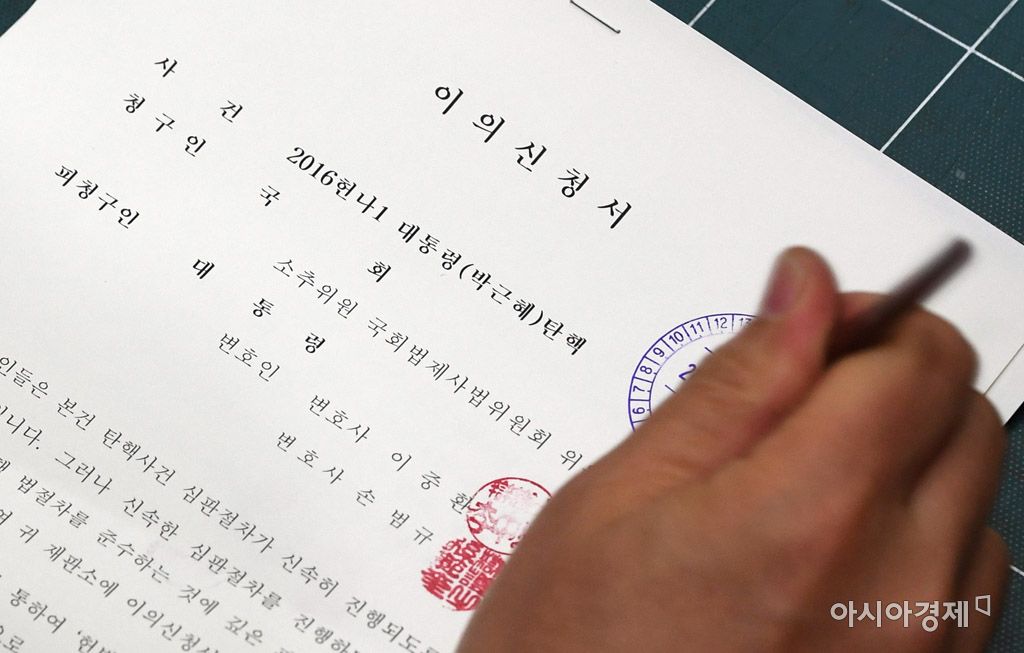 이 의 신 청 서
사 건 2016헌나1 대통령(박근혜)탄핵
청 구 인 국 회
소추위원 국회법제사법위원회 위
피청구인 대 통 령
변호인 변호사 이 중 환
변 호 사 손 범 규
인들은 본건 탄핵사건 심판절차가 신속히 진행되도록
입니다. 그러나 신속한 심판절차를 진행하
법절차를 준수하는 것에 깊은
귀 재판소에 이의신청
통하여 '헌법
으로
6 7 8 9 10 11 12 13
2
아시아경제